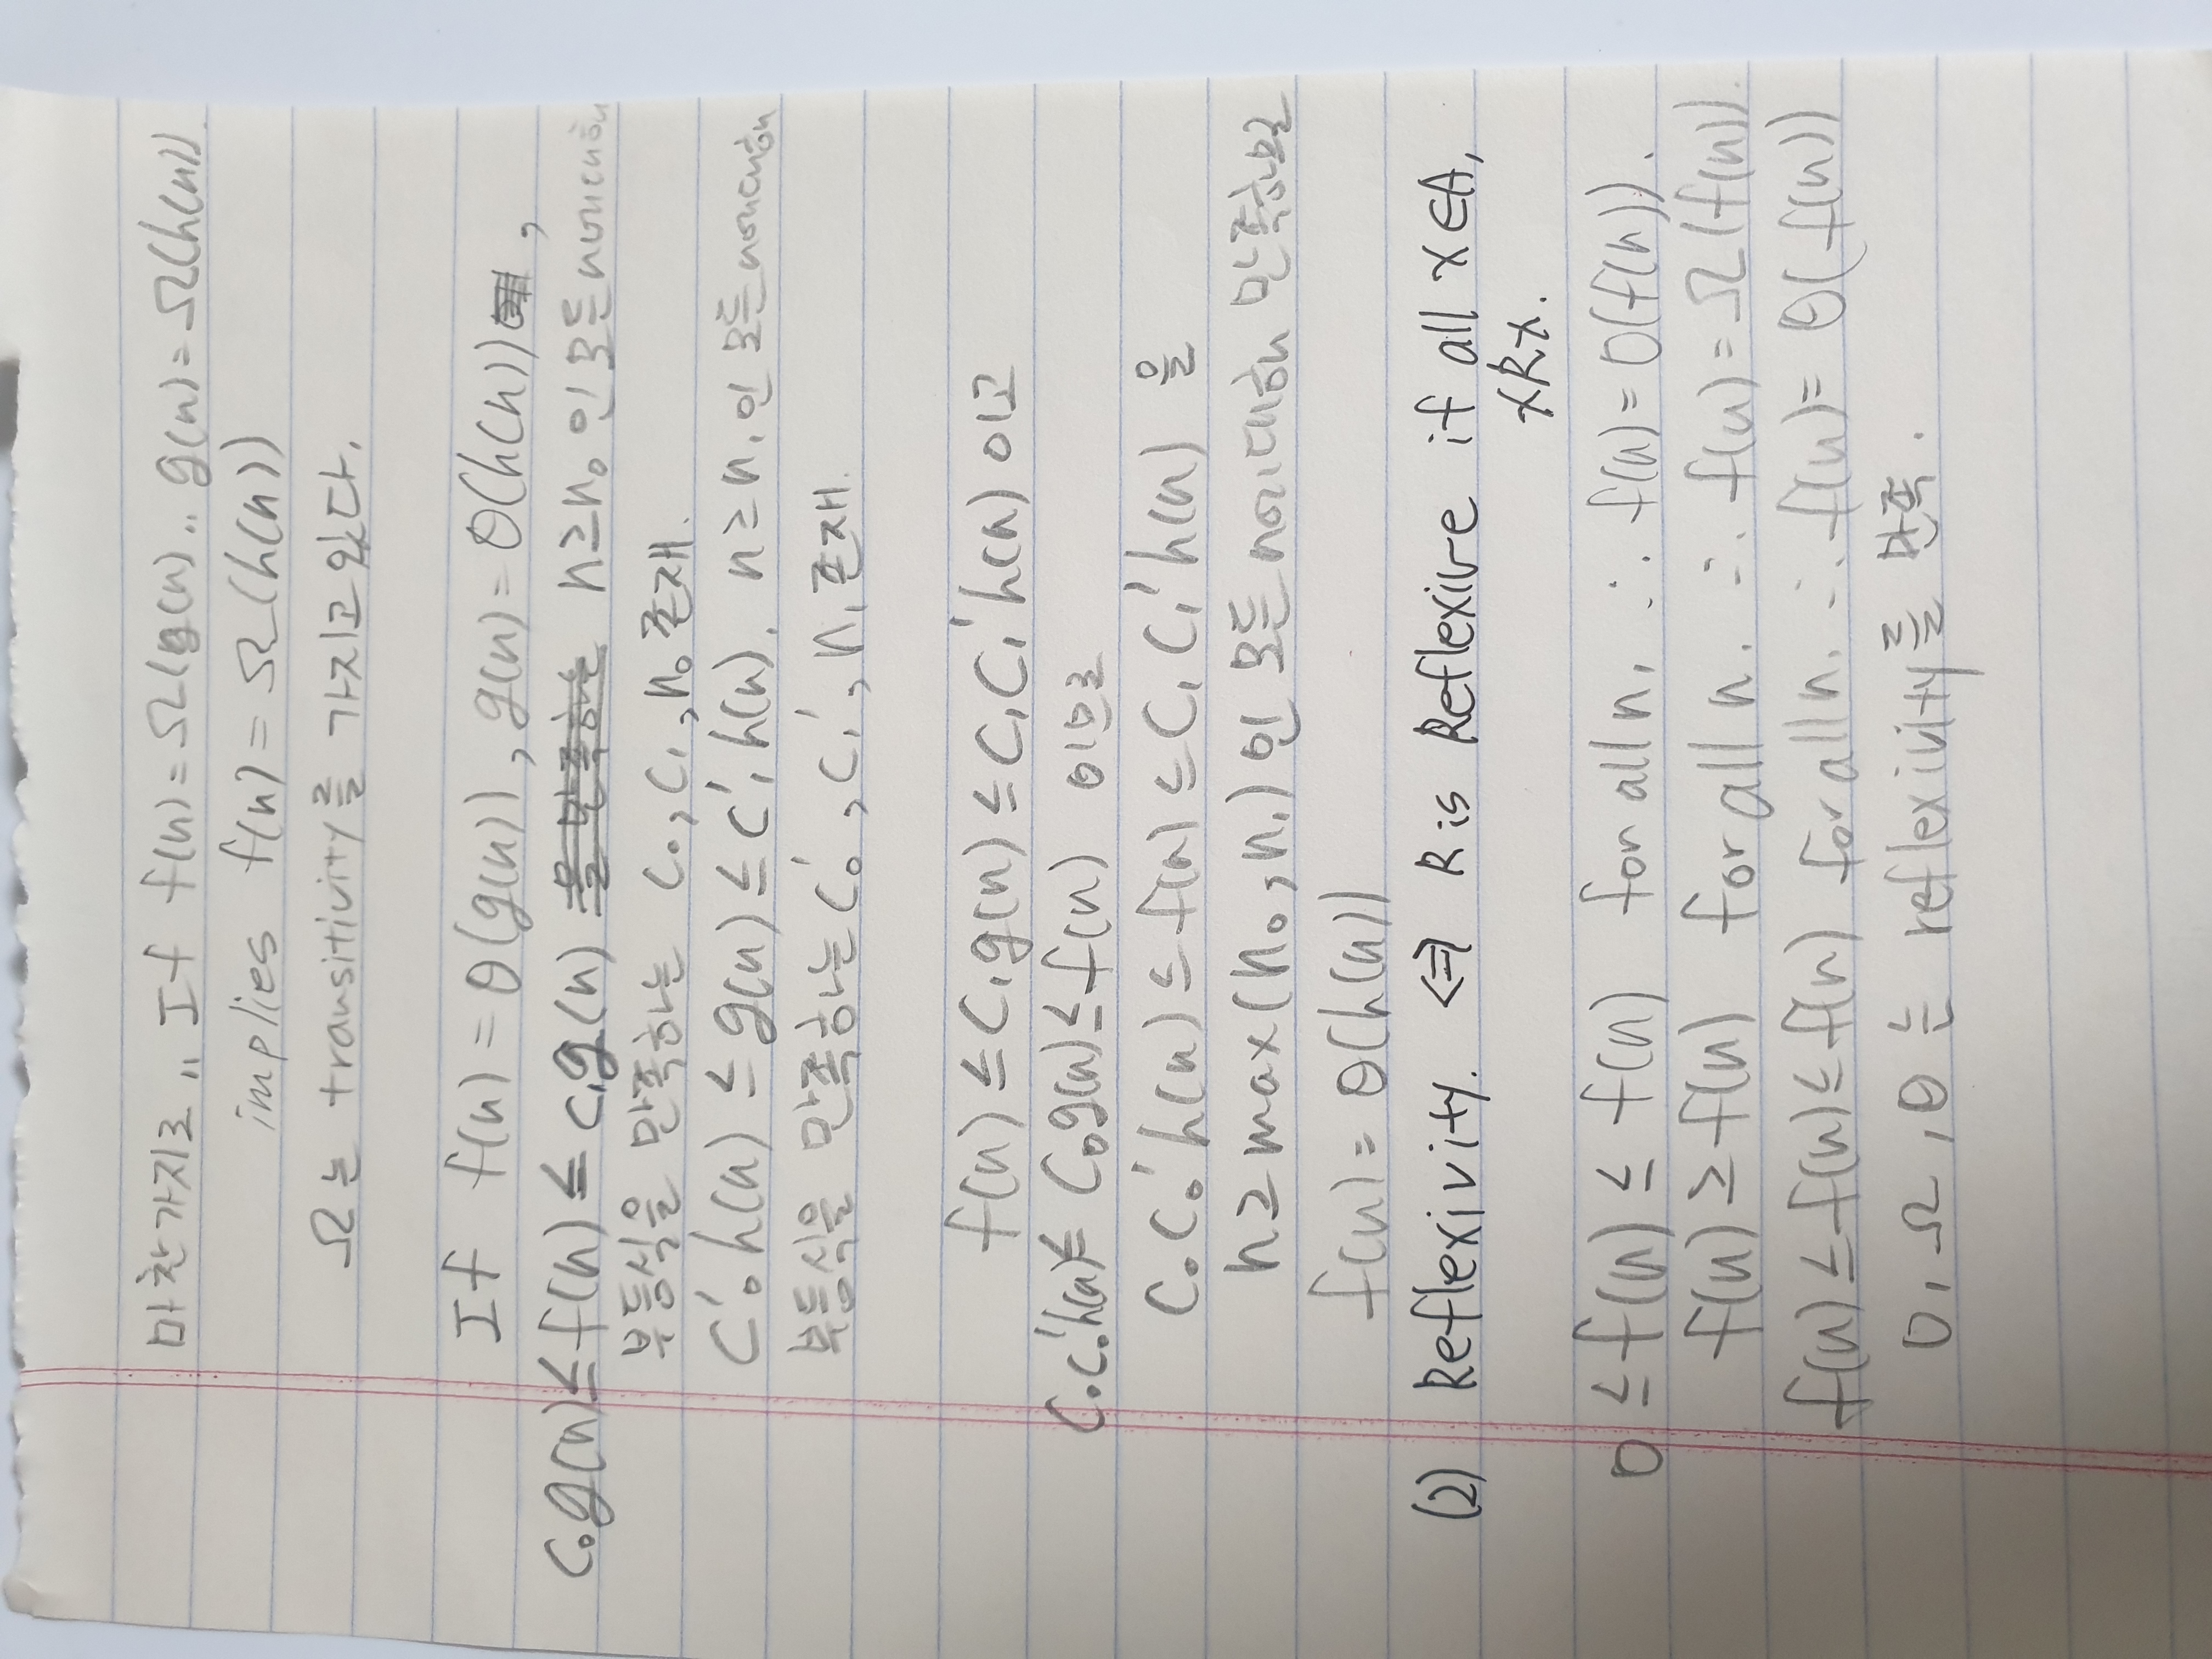 마찬가지로 ,, If f(n) = Ω(g(n) ,, g(n) = Ω(h(n)).
implies f(n) = Ω(h(n))
Ω는 transitivity를 가지고 있다.
If f(n) = θ(g(n)), g(n) = θ(h(n)) ,
C₀g(n) ≤ f(n) ≤ C₁g(n) 을 만족하는 n≥n₀ 인 모든 n에 대해
부등식을 만족하는 C₀, C₁, n₀ 존재.
C'₀h(n) ≤ g(n) ≤ C'₁h(n). n≥n₁인 모든 n에 대해
부등식을 만족하는 C₀', C₁', n₁ 존재.
f(n) ≤ C₁g(n) ≤ C₁C₁'h(n) 이고
C₀C₀'h(n) ≤ C₀g(n) ≤ f(n) 이므로
C₀C₀'h(n) ≤ f(n) ≤ C₁C₁'h(n) 을
n≥max(n₀, n₁)인 모든 n에 대해 만족하므로
f(n) = θ(h(n))
(2) Reflexivity. ⇔ R is Reflexive if all x∈A,
xRx.
0 ≤ f(n) ≤ f(n) for all n, ∴ f(n) = O(f(n)).
f(n) ≥ f(n) for all n. ∴ f(n) = Ω(f(n)).
f(n) ≤ f(n) ≤ f(n) for all n. ∴ f(n) = θ(f(n))
O, Ω, θ는 reflexivity를 만족.